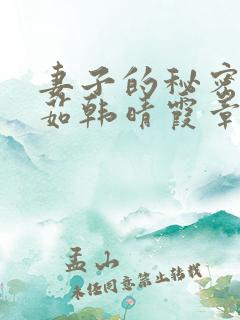 妻子的秘密
茹韩晴霞章
孟山
未经同意禁止转载